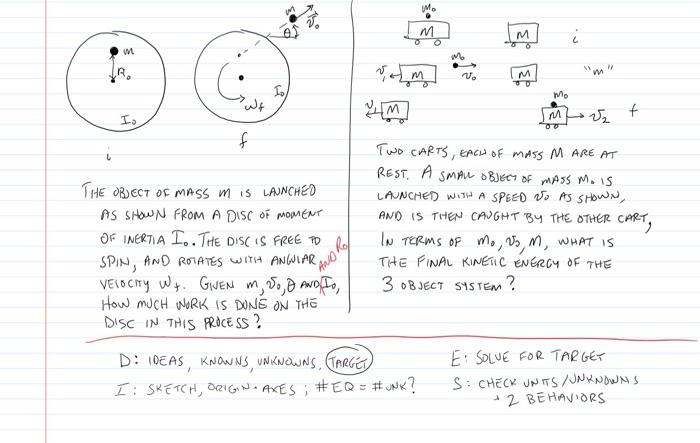 m
R₀
I₀
i
m
v₀
θ
I₀
ω_f
f
THE OBJECT OF MASS m IS LAUNCHED
AS SHOWN FROM A DISC OF MOMENT
OF INERTIA I₀. THE DISC IS FREE TO
SPIN, AND ROTATES WITH ANGULAR
AND R₀
VELOCITY ω_f. GIVEN m, v₀, θ AND I₀,
HOW MUCH WORK IS DONE ON THE
DISC IN THIS PROCESS?
m₀
M M i
m₀
v₁ M v₀ M "m"
m₀
v₁ M M v₂ f
TWO CARTS, EACH OF MASS M ARE AT
REST. A SMALL OBJECT OF MASS m₀ IS
LAUNCHED WITH A SPEED v₀ AS SHOWN,
AND IS THEN CAUGHT BY THE OTHER CART,
IN TERMS OF m₀, v₀, M, WHAT IS
THE FINAL KINETIC ENERGY OF THE
3 OBJECT SYSTEM?
D: IDEAS, KNOWNS, UNKNOWNS, TARGET
I: SKETCH, ORIGIN + AXES; #EQ = #UNK?
E: SOLVE FOR TARGET
S: CHECK UNITS/UNKNOWNS
+ 2 BEHAVIORS